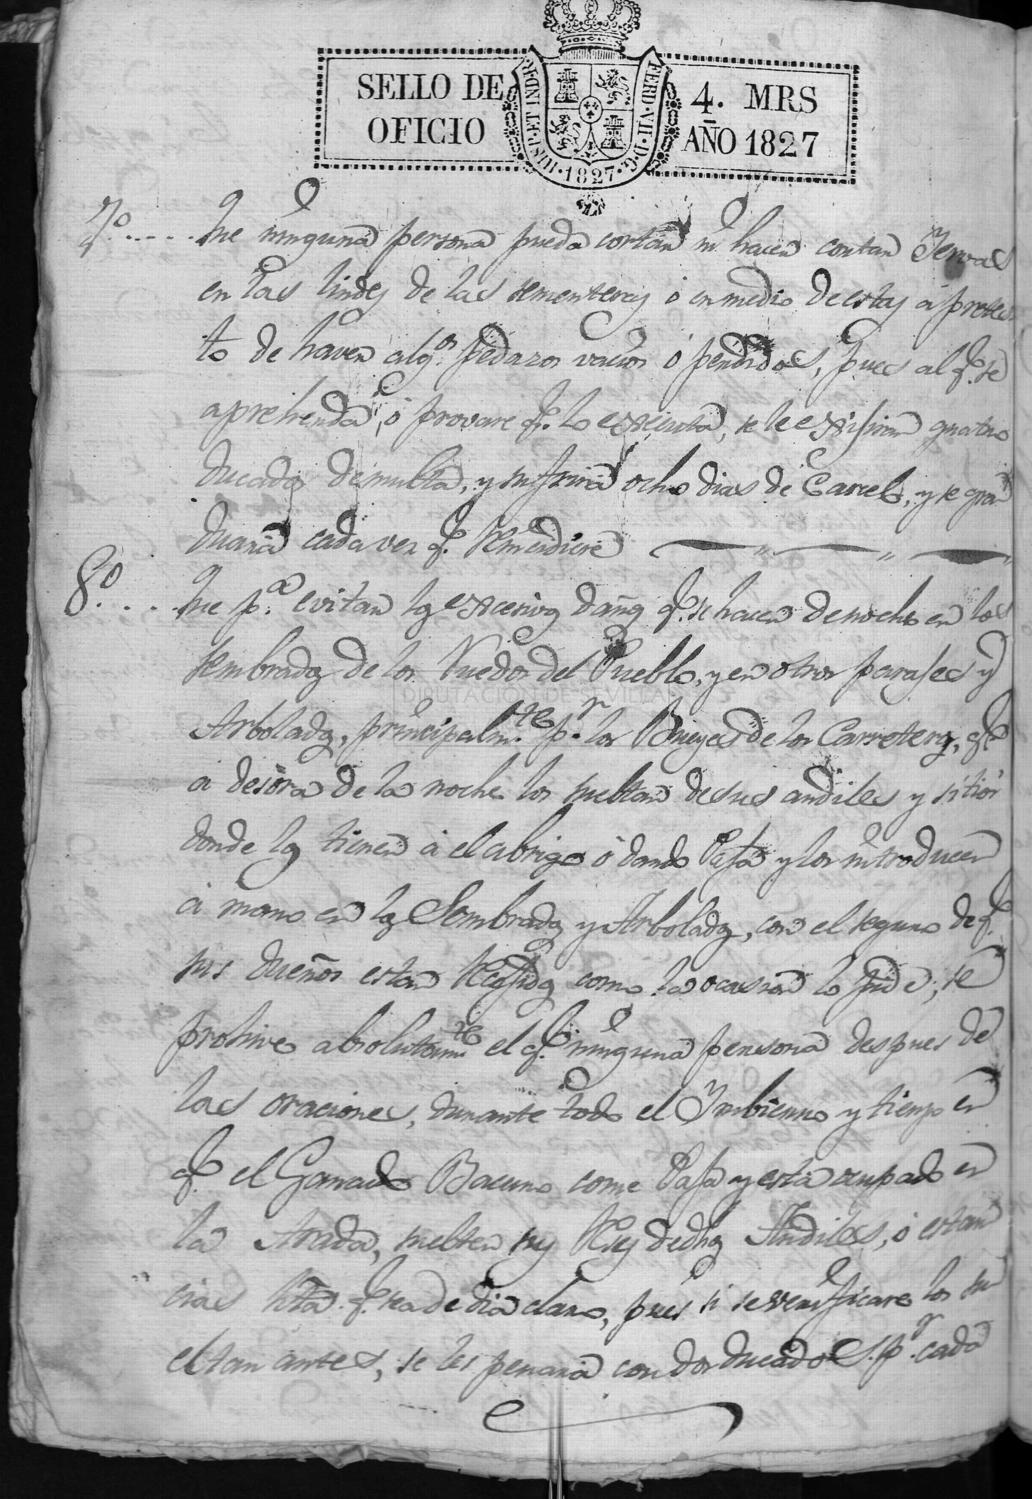 SELLO DE OFICIO
FERD·VII·D·G· HISP·ET IND·R· ·1827·
4. MRS
AÑO 1827
7º..... Que ninguna persona pueda cortar ni hacer cortar Yervas
en las lindes de las sementeras ó en medio de estas á pretes
to de haver algs. pedazos vacios ó perdidos, pues al q. se
aprehenda, ó provare q. lo executa, se le exsijiran quatro
ducados de multa, y sufrirá ocho dias de Carcel, y se gra
duará cada vez q. reincidiere
8º.... Que pa. evitar los excesivos daños q. se hacen de noche en los
sembrados de los Ruedos del Pueblo, y en otros parajes y
Arbolados, principalmte. pr. los Bueyes de los Carreteros, q.
á desora de la noche los sueltan de sus andiles y sitios
donde los tienen á el abrigo ó dando Paja y los introducen
á mano en los Sembrados y Arbolados, con el seguro de q.
sus dueños estan recojidos como la ocasion lo pide; se
prohive absolutamte. el q. ninguna persona despues de
las oraciones, durante todo el Ymbierno y tiempo en
q. el Ganado Bacuno come Paja y está ocupado en
la Arada, suelten sus Reses de dhos Andiles, ó estan
cias hta. q. sea de dia claro, pues si se verificare los su
eltan antes, se les penará con dos ducados pr. cada
DIPUTACIÓN DE SEVILLA